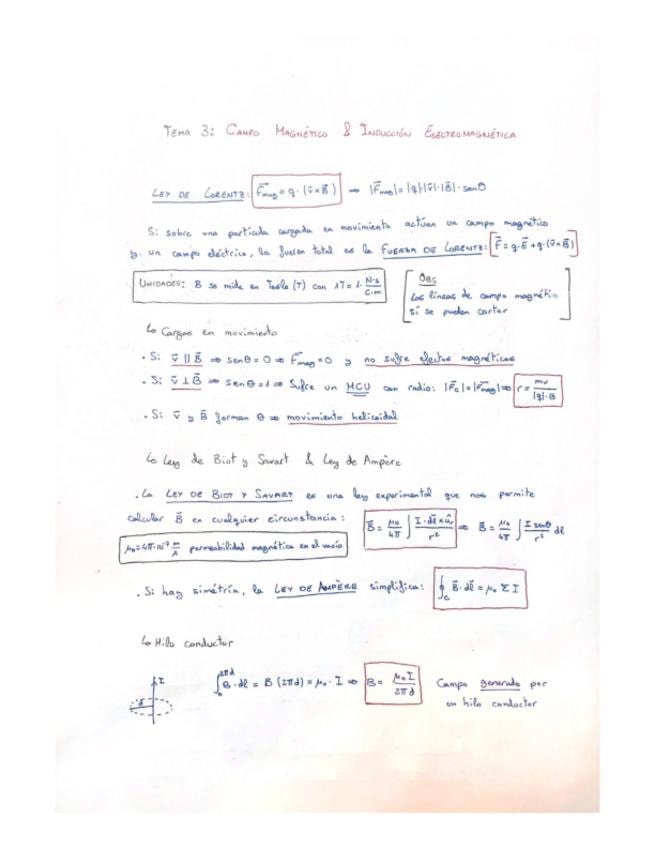 TEMA 3: CAMPO MAGNÉTICO & INDUCCIÓN ELECTROMAGNÉTICA
LEY DE LORENTZ: F⃗mag = q · (v⃗ × B⃗) ⇒ |F⃗mag| = |q|·|v⃗|·|B⃗|· senθ
Si sobre una partícula cargada en movimiento actúan un campo magnético
y un campo eléctrico, la fuerza total es la FUERZA DE LORENTZ: F⃗ = q·E⃗ + q·(v⃗×B⃗)
UNIDADES: B se mide en Tesla (T) con 1T = 1· N·s/C·m
OBS
Las líneas de campo magnétic
sí se pueden cortar
↳ Cargas en movimiento
· Si v⃗ ∥ B⃗ ⇒ senθ = 0 ⇒ F⃗mag = 0 y no sufre efectos magnéticos
· Si v⃗ ⊥ B⃗ ⇒ senθ = 1 ⇒ Sufre un MCU con radio: |F⃗c| = |F⃗mag| ⇒ r = mv/|q|·B
· Si v⃗ y B⃗ forman θ ⇒ movimiento helicoidal
↳ Ley de Biot y Savart & Ley de Ampère
· La LEY DE BIOT Y SAVART es una ley experimental que nos permite
calcular B⃗ en cualquier circunstancia: B⃗ = μ₀/4π ∫ I·dl⃗×ûr/r² ⇒ B⃗ = μ₀/4π ∫ I senθ/r² dl
μ₀ = 4π·10⁻⁷ m/A permeabilidad magnética en el vacío
· Si hay simétría, la LEY DE AMPÈRE simplifica: ∮c B⃗·dl⃗ = μ₀ Σ I
↳ Hilo conductor
I
d
∫₀^2πd B·dl = B (2πd) = μ₀ · I ⇒ B = μ₀I/2πd Campo generado por
un hilo conductor